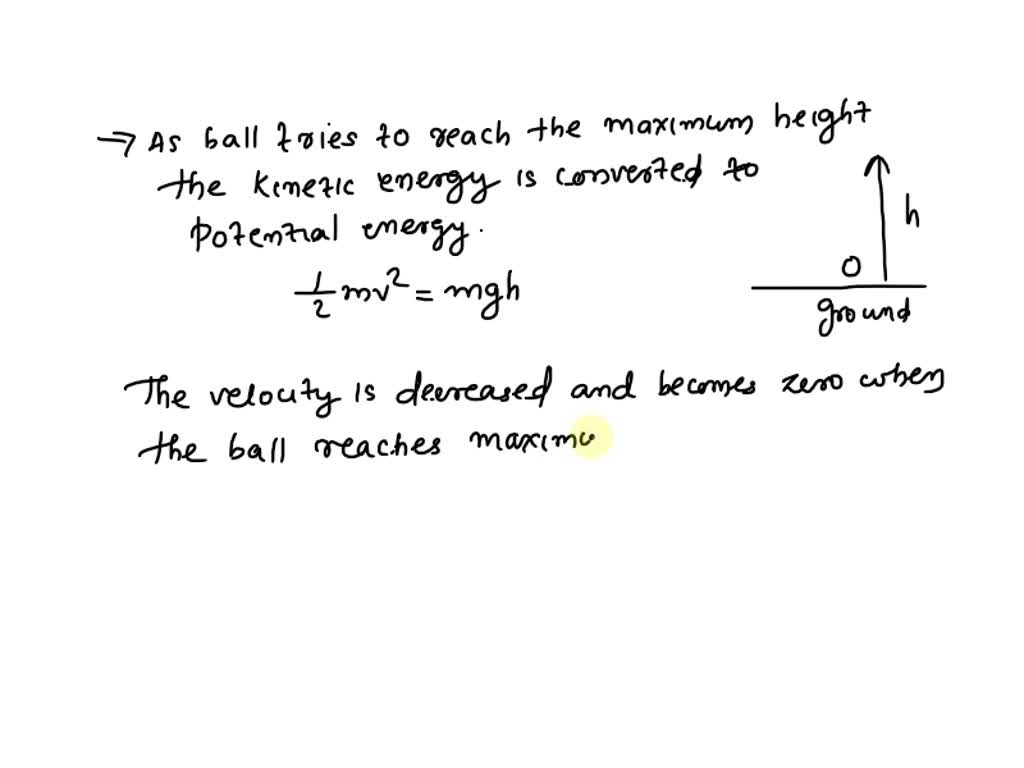 → As ball tries to reach the maximum height
the kinetic energy is converted to
potential energy.
h
1/2 mv² = mgh
O
ground
The velocity is decreased and becomes zero when
the ball reaches maximu